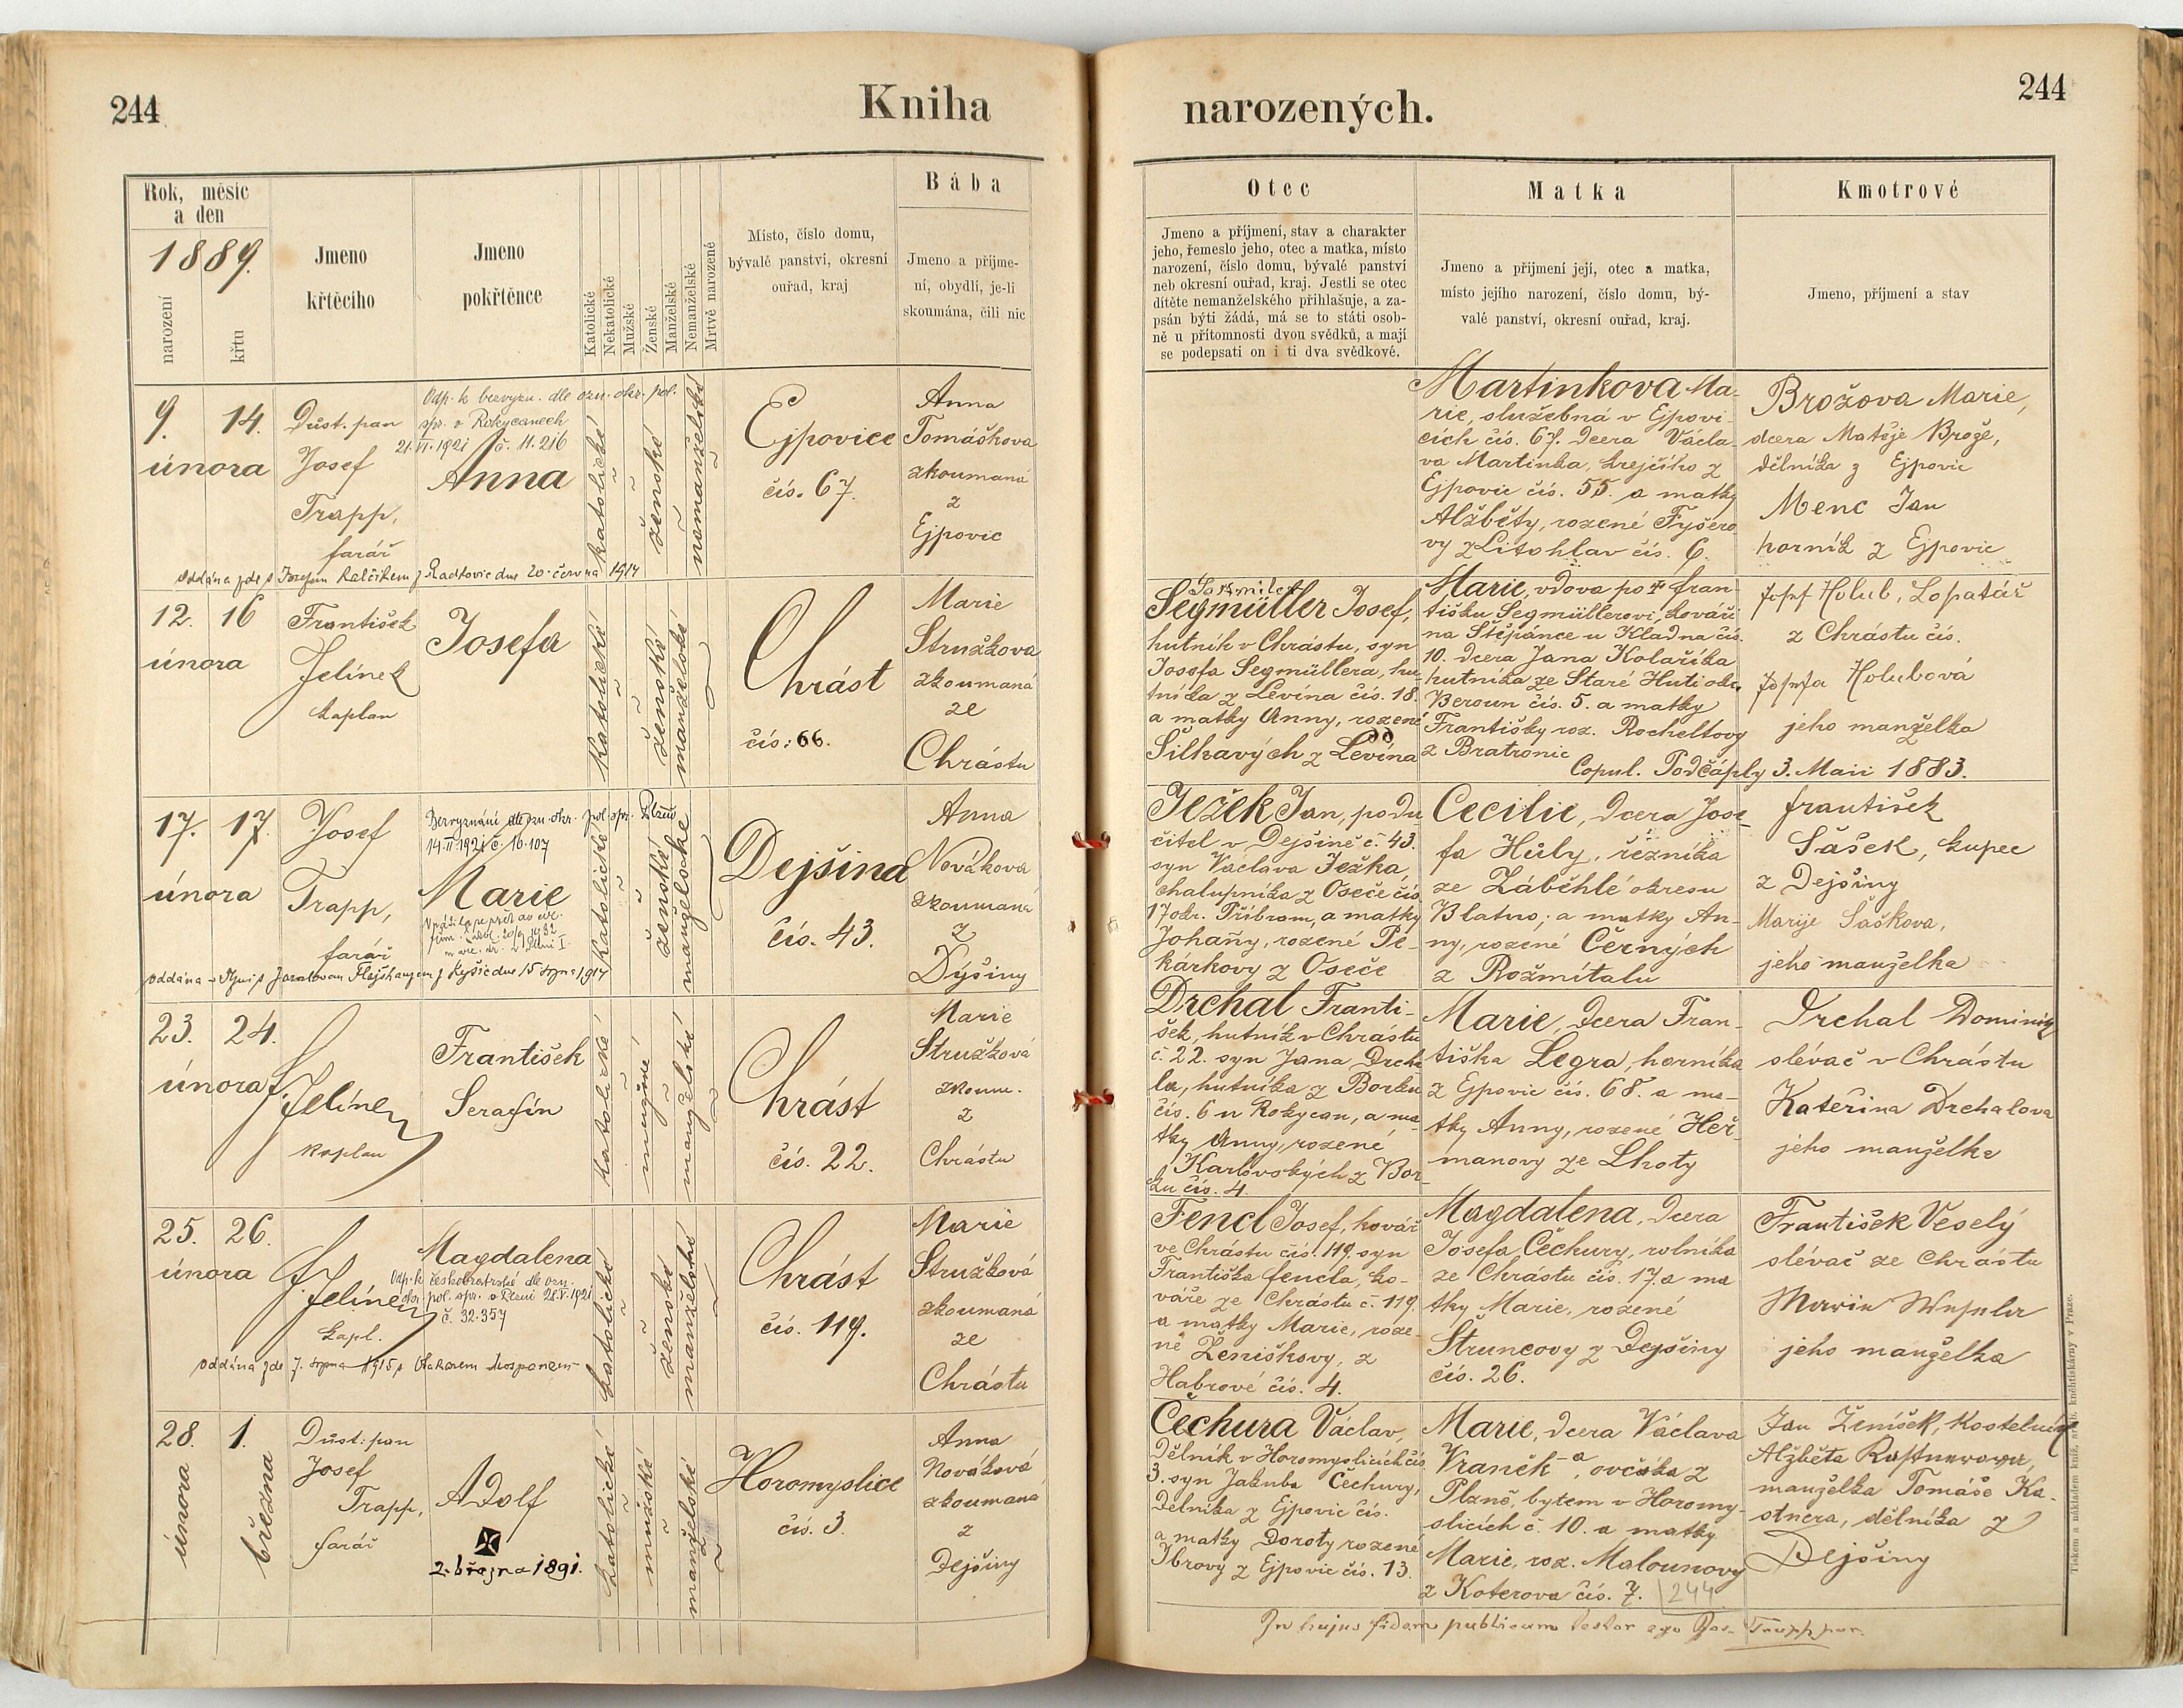 244
Kniha
narozených.
244
Rok, měsíc
a den
1889.
narození
křtu
Jmeno
křtěcího
Jmeno
pokřtěnce
Katolické
Nekatolické
Mužské
Ženské
Manželské
Nemanželské
Mrtvě narozené
Místo, číslo domu,
bývalé panství, okresní
ouřad, kraj
Bába
Jmeno a příjme-
ní, obydlí, je-li
skoumána, čili nic
Otec
Jmeno a příjmení, stav a charakter
jeho, řemeslo jeho, otec a matka, místo
narození, číslo domu, bývalé panství
neb okresní ouřad, kraj. Jestli se otec
dítěte nemanželského přihlašuje, a za-
psán býti žádá, má se to státi osob-
ně u přítomnosti dvou svědků, a mají
se podepsati on i ti dva svědkové.
Matka
Jmeno a přijmení její, otec a matka,
místo jejího narození, číslo domu, bý-
valé panství, okresní ouřad, kraj.
Kmotrové
Jmeno, příjmení a stav
9. 14.
února
Důst. pan
Josef
Trapp,
farář
Odp. k bezvyzn. dle ozn. okr. pol.
spr. v Rokycanech
21.VI.1921 č. 11.216
Anna
katolické
ženské
nemanželské
Ejpovice
čís. 67.
Anna
Tomáškova
zkoumaná
z
Ejpovic
Martinkova Ma-
rie, služebná v Ejpovi-
cích čís. 67. dcera Václa-
va Martinka, krejčího z
Ejpovic čís. 55. a matky
Alžběty, rozené Fyšero-
vy z Litohlav čís. 6.
Brožova Marie,
dcera Matěje Brože,
dělníka z Ejpovic
Menc Jan
horník z Ejpovic
oddána zde s Josefem Kalčíkem z Radkovic dne 20. června 1914
12. 16
února
František
Jelínek
kaplan
Josefa
katolické
ženské
manželské
Chrást
čís: 66.
Marie
Stružkova
zkoumaná
ze
Chrástu
Segmüller Josef,
hutník v Chrástu, syn
Josefa Segmüllera, hu-
tníka z Levína čís. 18.
a matky Anny, rozené
Šilhavých z Levína
Marie, vdova po † Fran-
tišku Segmüllerovi, kováři
na Štěpánce u Kladna čís.
10. dcera Jana Kolaříka
hutníka ze Staré Huti okr.
Beroun čís. 5. a matky
Františky roz. Rocheltovy
z Bratronic
Copul. Podčáply 3. Maii 1883.
Josef Holub, Lopatář
z Chrástu čís.
Josefa Holubová
jeho manželka
17. 17.
února
Josef
Trapp,
farář
Bezvyznání dle ozn. okr. pol. spr. Plzeň
14.II.1921 č. 16.107
Marie
katolické
ženské
manželské
Dejšina
čís. 43.
Anna
Nováková
zkoumaná
z
Dýšiny
Ježek Jan, podu-
čitel v Dejšině č. 43.
syn Václava Ježka,
chalupníka z Oseče čís.
17 okr. Příbram, a matky
Johany, rozené Pe-
kárkovy z Oseče
Cecilie, dcera Jose-
fa Hůly, řezníka
ze Záběhlé okresu
Blatno; a matky An-
ny, rozené Černých
z Rožmitálu
František
Šášek, kupec
z Dejšiny
Marije Šáškova,
jeho manželka
23. 24.
února
F. Jelínek
kaplan
František
Serafín
katolické
mužské
manželské
Chrást
čís. 22.
Marie
Stružková
zkoum.
z
Chrástu
Drchal Franti-
šek, hutník v Chrástu
č. 22. syn Jana Drcha-
la, hutníka z Borku
čís. 6 u Rokycan, a ma-
tky Anny, rozené
Karlovských z Bor-
ku čís. 4.
Marie, dcera Fran-
tiška Legra, horníka
z Ejpovic čís. 68. a ma-
tky Anny, rozené Heř-
manovy ze Lhoty
Drchal Dominik
slévač v Chrástu
Kateřina Drchalova
jeho manželka
25. 26.
února
F. Jelínek
kapl.
Magdalena
Odp. k českobratrské dle ozn.
okr. pol. spr. v Plzni 28.V.1921
č. 32.357
katolické
ženské
manželské
Chrást
čís. 119.
Marie
Stružková
zkoumaná
ze
Chrástu
Fencl Josef, kovář
ve Chrástu čís. 119. syn
Františka Fencla, ko-
váře ze Chrástu č. 119.
a matky Marie, roze-
né Ženíškovy, z
Habrové čís. 4.
Magdalena, dcera
Josefa Čechury, rolníka
ze Chrástu čís. 17. a ma
tky Marie, rozené
Štruncovy z Dejšiny
čís. 26.
František Veselý
slévač ze Chrástu
Marie Wesela
jeho manželka
oddána zde 7. srpna 1915 s Otakarem
28. 1.
února
března
Důst: pan
Josef
Trapp,
farář
Adolf
2. března 1891.
katolické
mužské
manželské
Horomyslice
čís. 3.
Anna
Nováková
zkoumaná
z
Dejšiny
Čechura Václav,
dělník v Horomyslicích čís.
3. syn Jakuba Čechury,
dělníka z Ejpovic čís.
a matky Doroty rozené
Ibrovy z Ejpovic čís. 13.
Marie, dcera Václava
Vraněk-a, ovčáka z
Plzně, bytem v Horomy-
slicích č. 10. a matky
Marie, roz. Malounovy
z Koterova čís. 7.
244
Jan Ženíšek, kostelník
Alžběta Kastnerova,
manželka Tomáše Ka-
stnera, dělníka z
Dejšiny
In hujus fidem publicam testor ego Jos. Trapp par.
Tiskem a nákladem kníž. arcib. knihtiskárny v Praze.